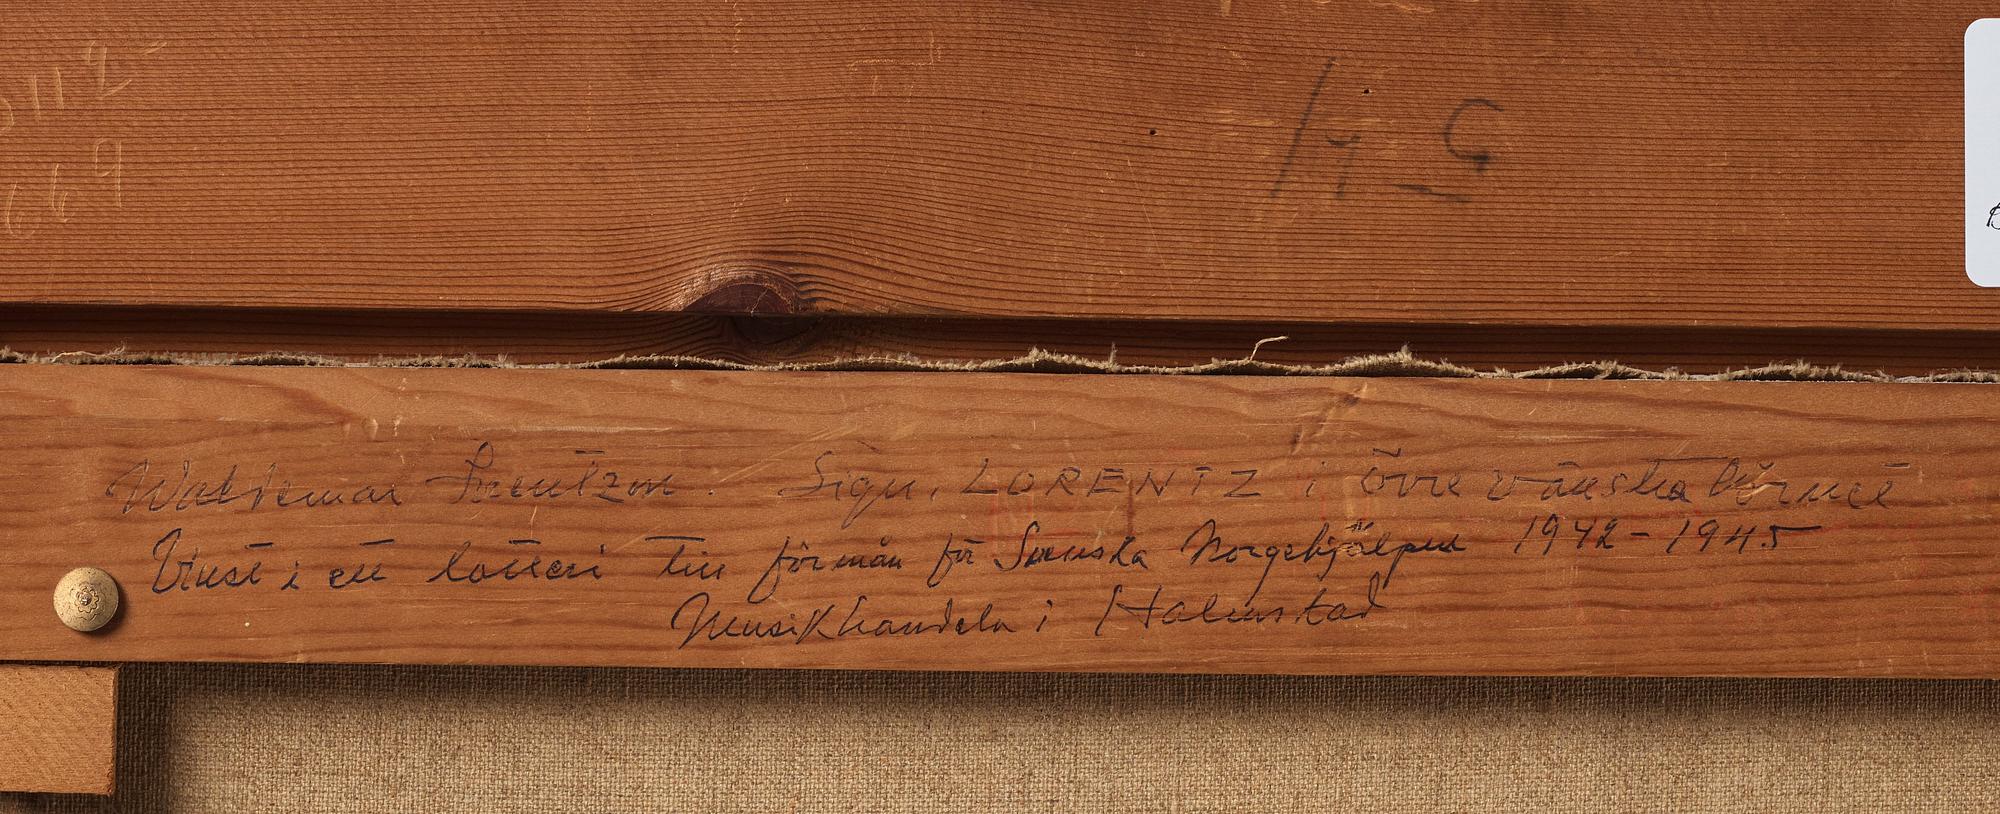 5112
669
/4 5
Waldemar Lorentzon. Sign. LORENTZ i övre vänstra hörnet
Vinst i ett lotteri till förmån för Svenska Norgehjälpen 1942-1945
Musikhandeln i Halmstad